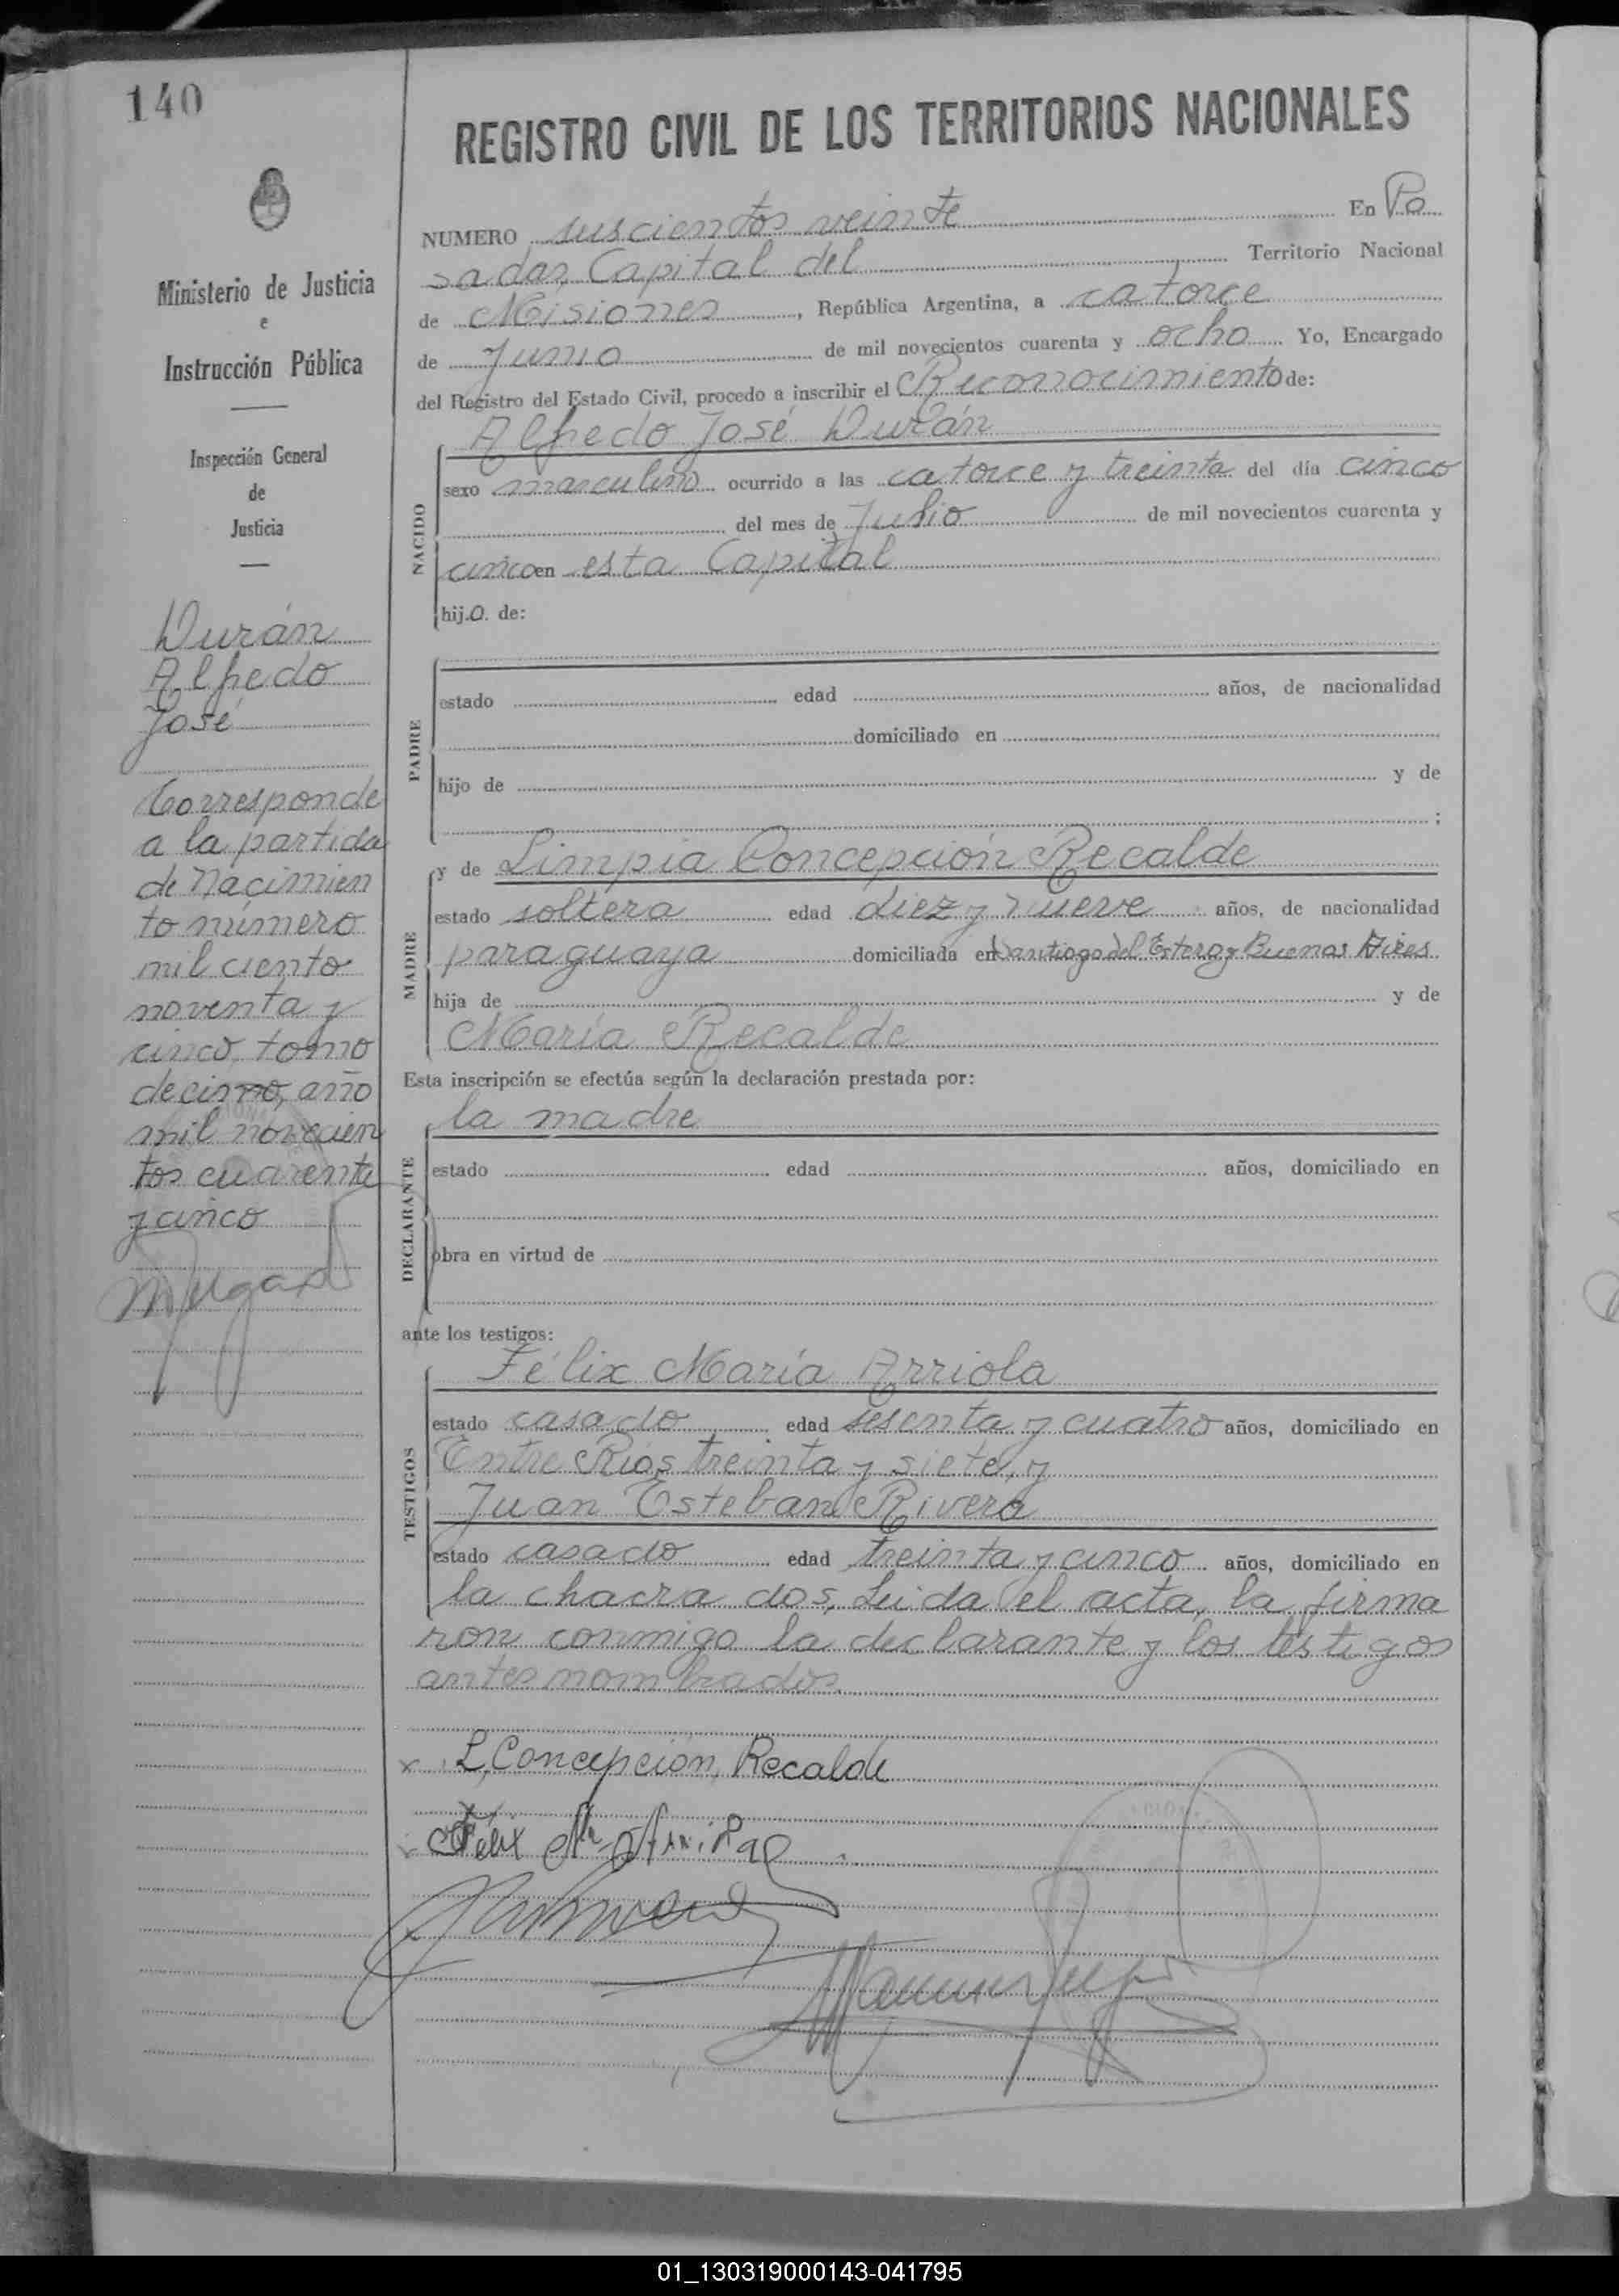 140
REGISTRO CIVIL DE LOS TERRITORIOS NACIONALES
Ministerio de Justicia
e
Instrucción Pública
Inspección General
de
Justicia
Durán
Alfredo
José
Corresponde
a la partida
de Nacimien
to número
mil ciento
noventa y
cinco, tomo
decimo, año
mil novecien
tos cuarenta
y cinco
NUMERO suscientos veinte En Po
sadas, Capital del Territorio Nacional
de Misiones, República Argentina, a catorce
de Junio de mil novecientos cuarenta y ocho Yo, Encargado
del Registro del Estado Civil, procedo a inscribir el Reconocimiento de:
Alfredo José Durán
NACIDO
sexo masculino ocurrido a las catorce y treinta del día cinco
del mes de Julio de mil novecientos cuarenta y
cinco en esta Capital
hijo de:
PADRE
estado edad años, de nacionalidad
domiciliado en
hijo de y de
;
y de Limpia Concepción Recalde
MADRE
estado soltera edad diez y nueve años, de nacionalidad
paraguaya domiciliada en Santiago del Estero y Buenos Aires
hija de y de
María Recalde
Esta inscripción se efectúa según la declaración prestada por:
la madre
DECLARANTE
estado edad años, domiciliado en
obra en virtud de
ante los testigos:
Félix María Arriola
TESTIGOS
estado casado edad sesenta y cuatro años, domiciliado en
Entre Ríos treinta y siete, y
Juan Esteban Rivero
estado casado edad treinta y cinco años, domiciliado en
la chacra dos, Leida el acta, la firma
ron conmigo la declarante y los testigos
antes nombrados.
x L, Concepción, Recalde
Félix Ma Arriola
01_130319000143-041795